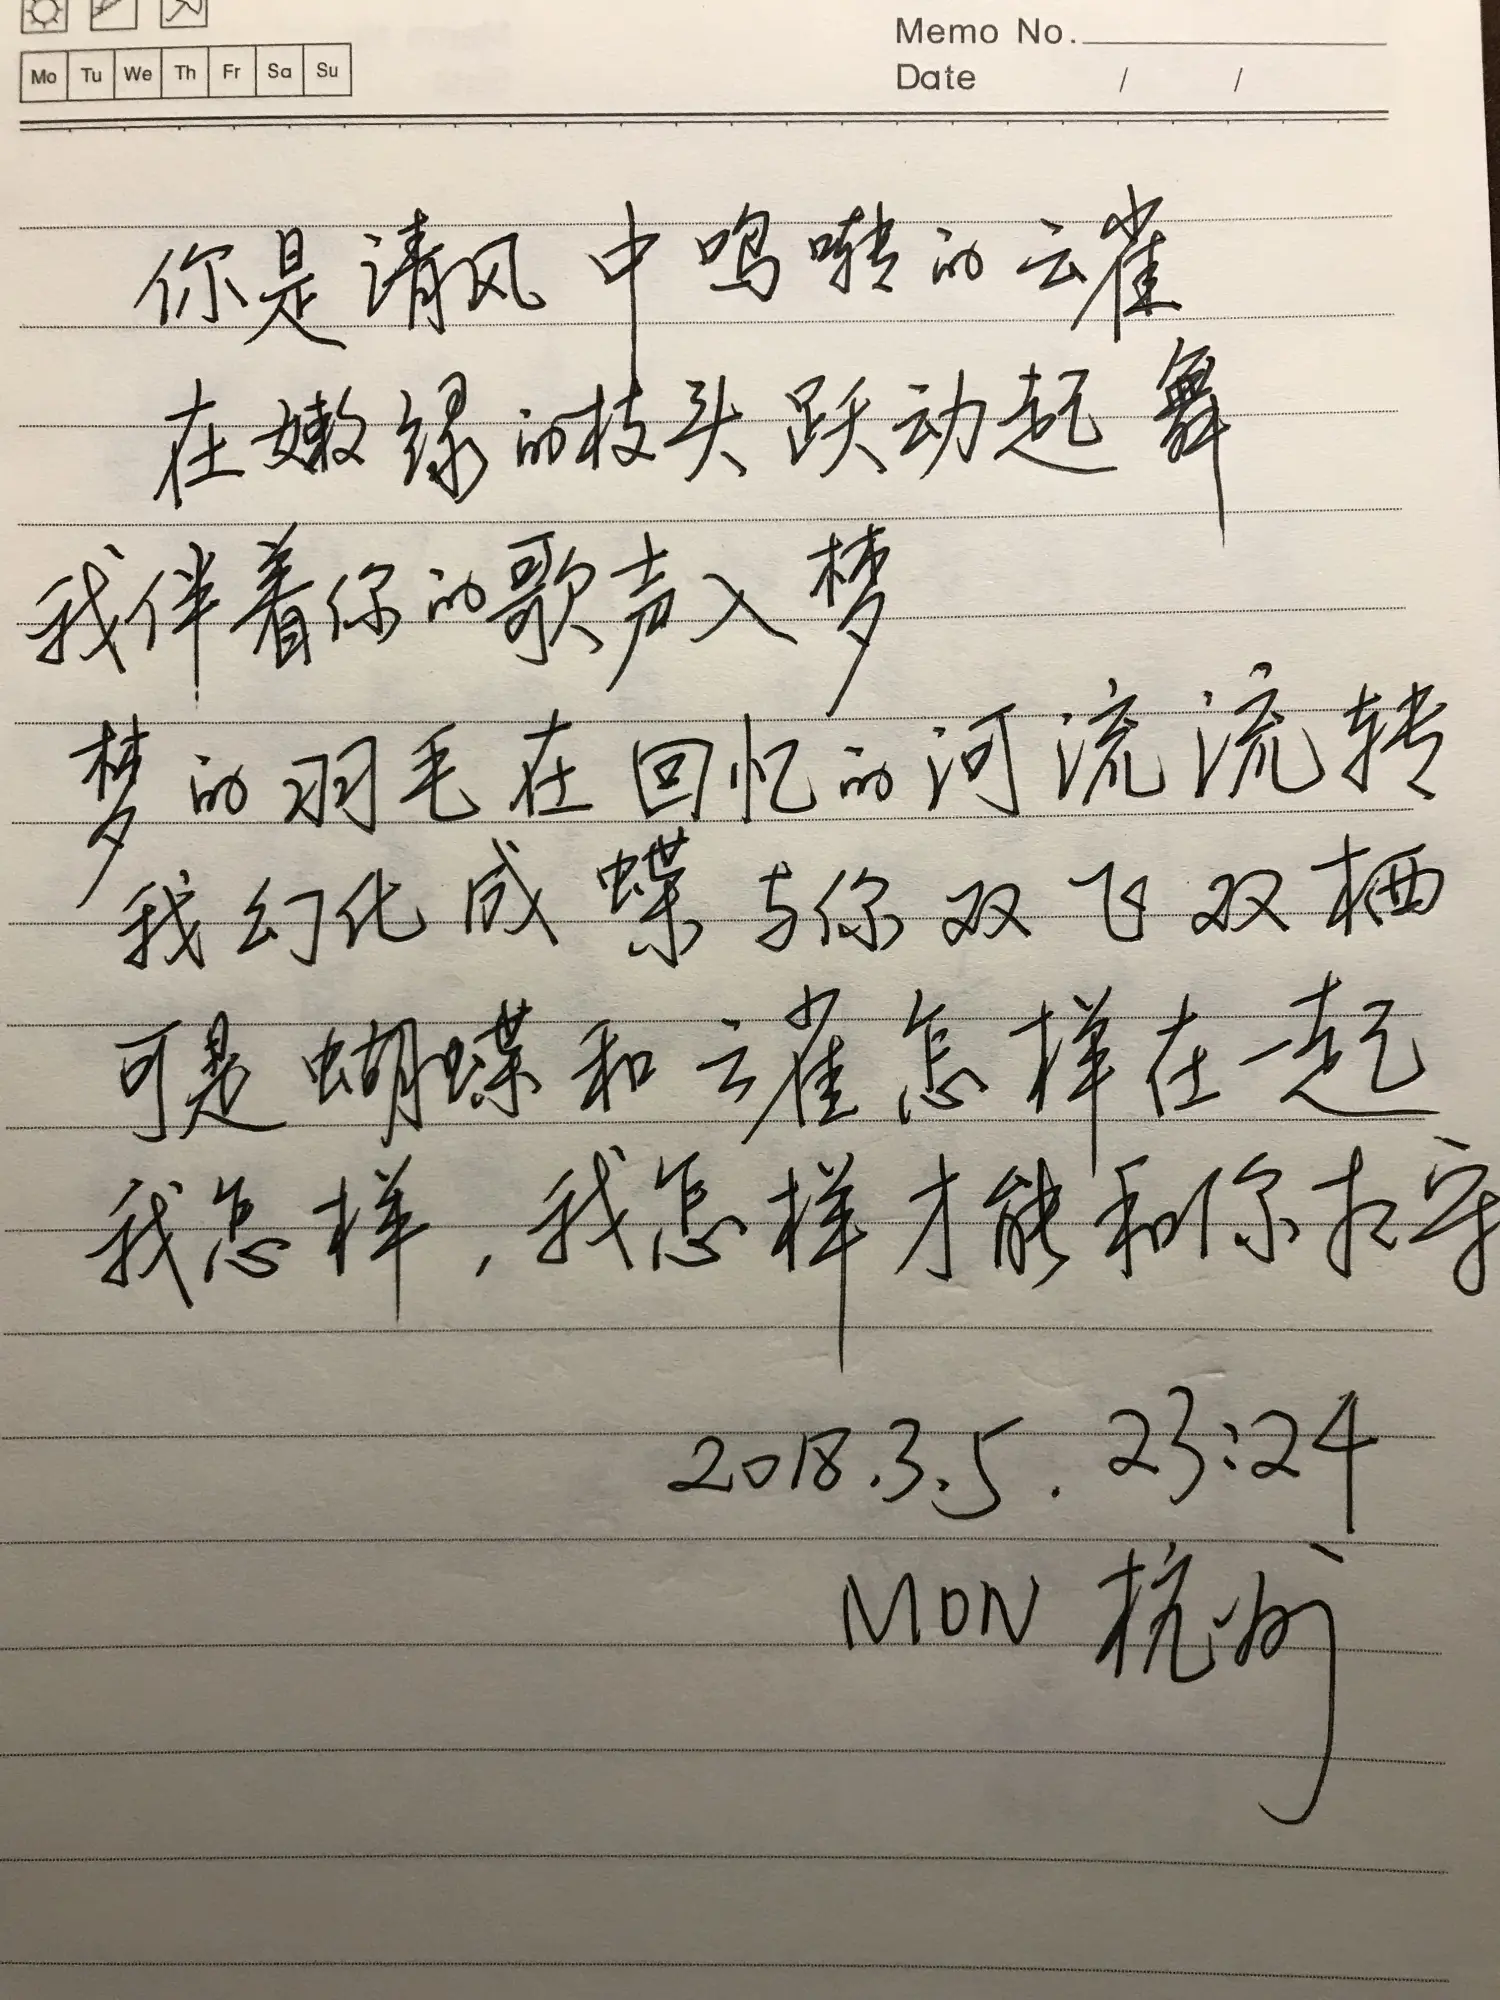 Memo No.
Mo Tu We Th Fr Sa Su
Date / /
你是清风中鸣啭的云雀
在嫩绿的枝头跃动起舞
我伴着你的歌声入梦
梦的羽毛在回忆的河流流转
我幻化成蝶与你双飞双栖
可是蝴蝶和云雀怎样在一起
我怎样,我怎样才能和你相守
2018.3.5. 23:24
MON 杭州